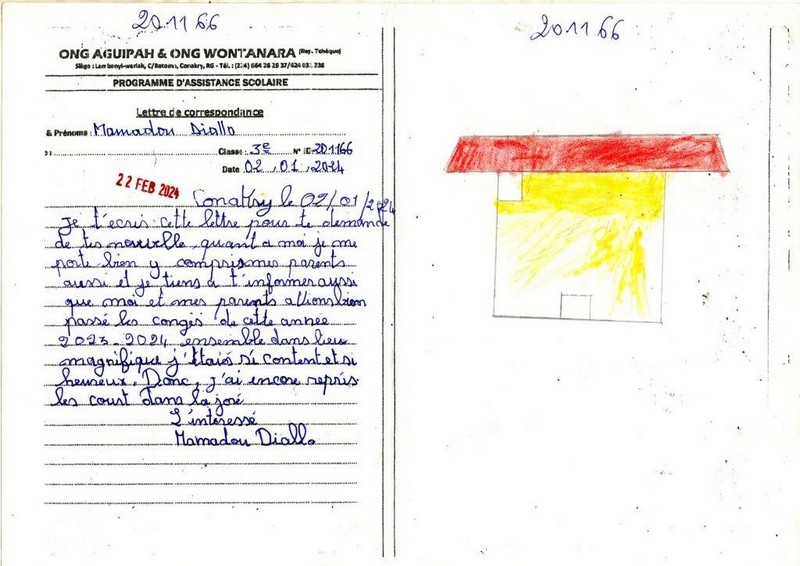 20 11 66
ONG AGUIPAH & ONG WONTANARA (Rep. Tchèque)
Siège : Lambanyi-wariah, C/Ratoma, Conakry, RG - Tél. : (224) 664 26 29 37/624 031 338
PROGRAMME D'ASSISTANCE SCOLAIRE
Lettre de correspondance
& Prénoms : Mamadou Diallo
Classe : 3e N° ID 201166
Date 02, 01, 2024
22 FEB 2024
Conakry le 02/01/2024
Je t'écris cette lettre pour te demande
de tes nouvelle, quant a moi je me
porte bien y compris mes parents
aussi et je tiens à t'informer aussi
que moi et mes parents allions bien
passé les congés de cette année
2023-2024 ensemble dans lieu
magnifique j'étais si content et si
heureux. Donc, j'ai encore repris
les court dans la joré
L'intéressé
Mamadou Diallo
20 11 66